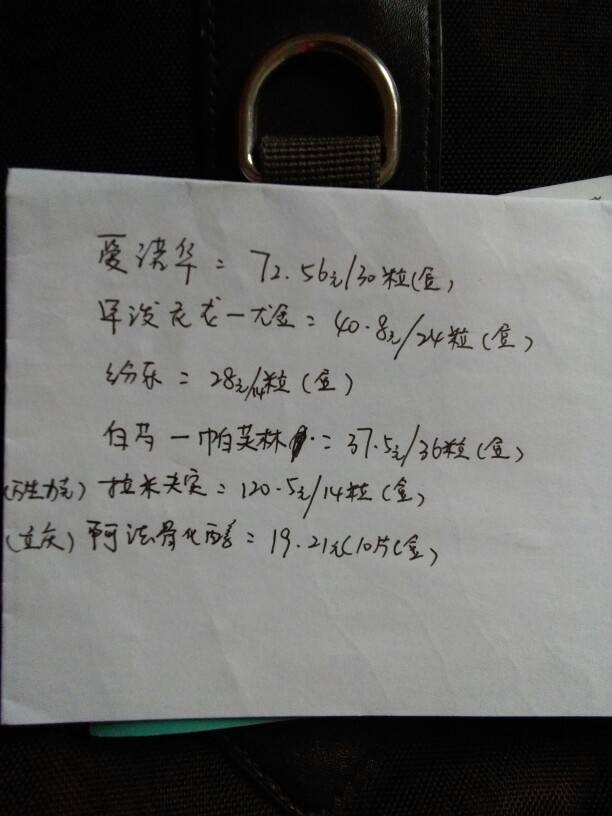 爱诺华=72.56元/30粒(盒)
甲泼尼龙一尤金=40.8元/24粒(盒)
纷乐=28元/14粒(盒)
白芍一帕芙林=37.5元/36粒(盒)
(万生力克)拉米夫定=120.5元/14粒(盒)
(立庆)阿法骨化醇=19.21元(10片(盒)